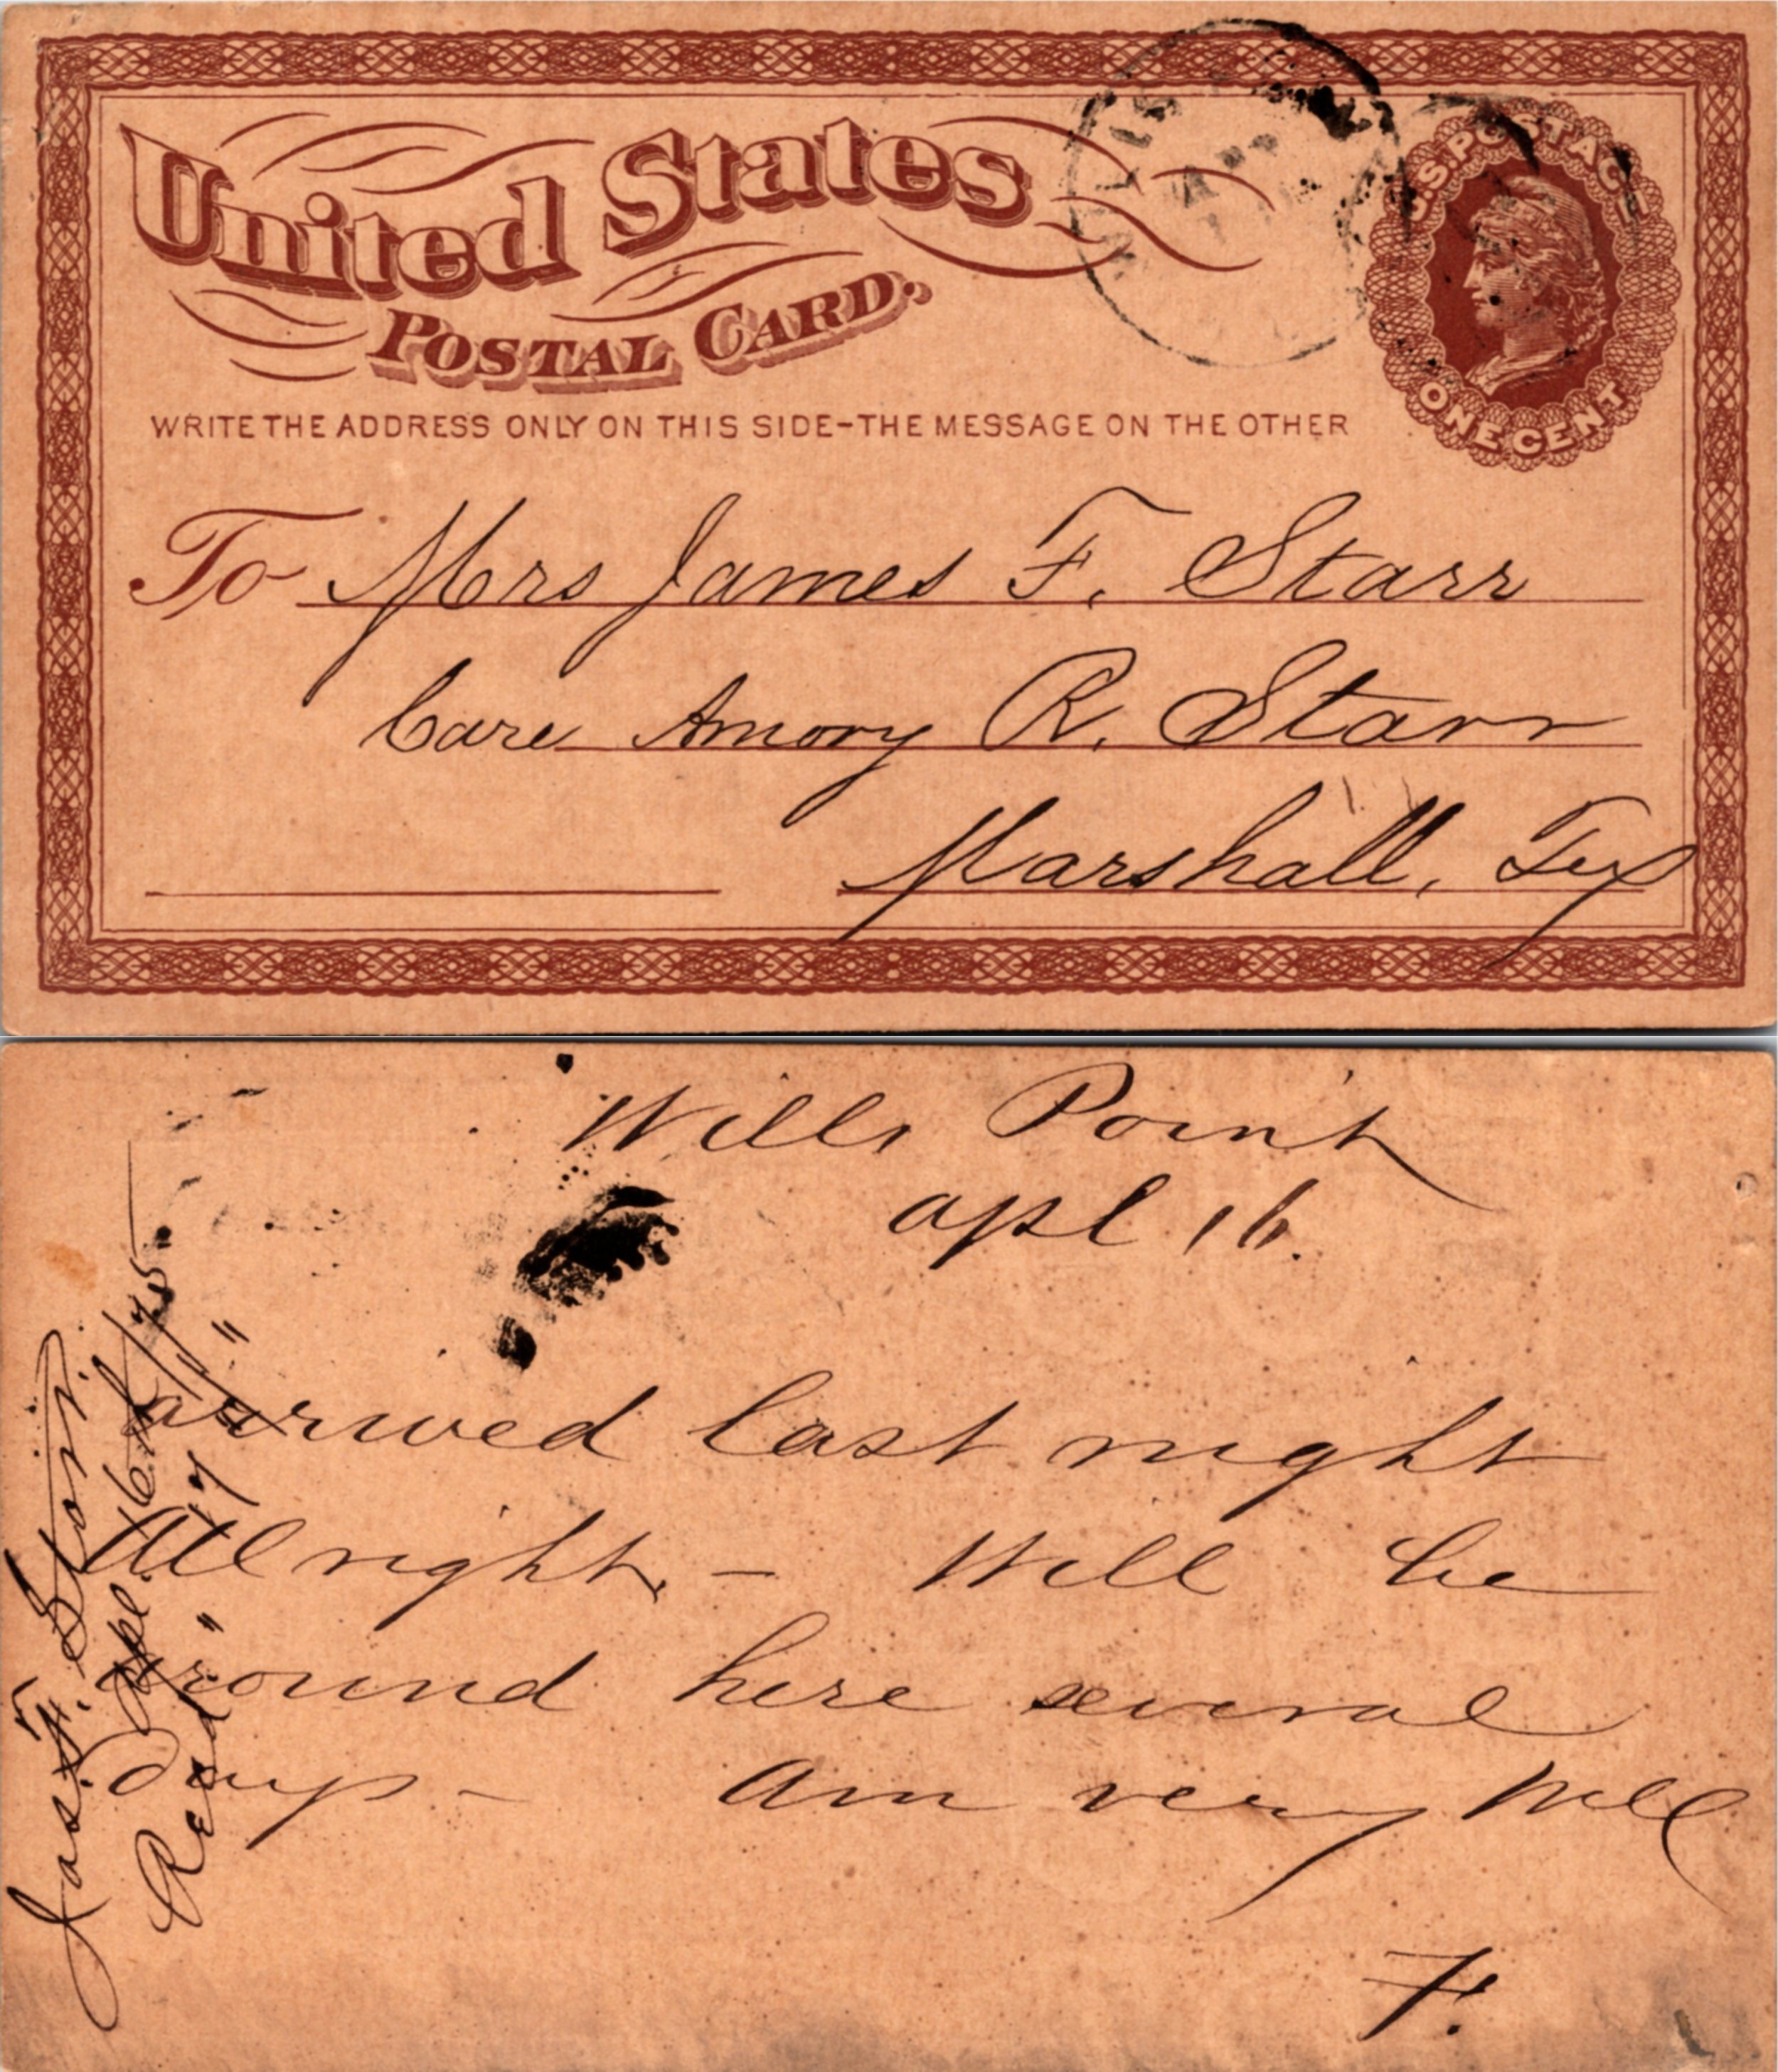 United States
POSTAL CARD.
U.S. POSTAGE
ONE CENT
WRITE THE ADDRESS ONLY ON THIS SIDE-THE MESSAGE ON THE OTHER
To Mrs James F. Starr
Care Amory R. Starr
Marshall, Tex
Wills Point
apl 16.
arrived last night
All right. - Will be
around here several
days - am very well
F.
Jas. F. Starr.
Apl. 16th/75
Recd " 17th/ "